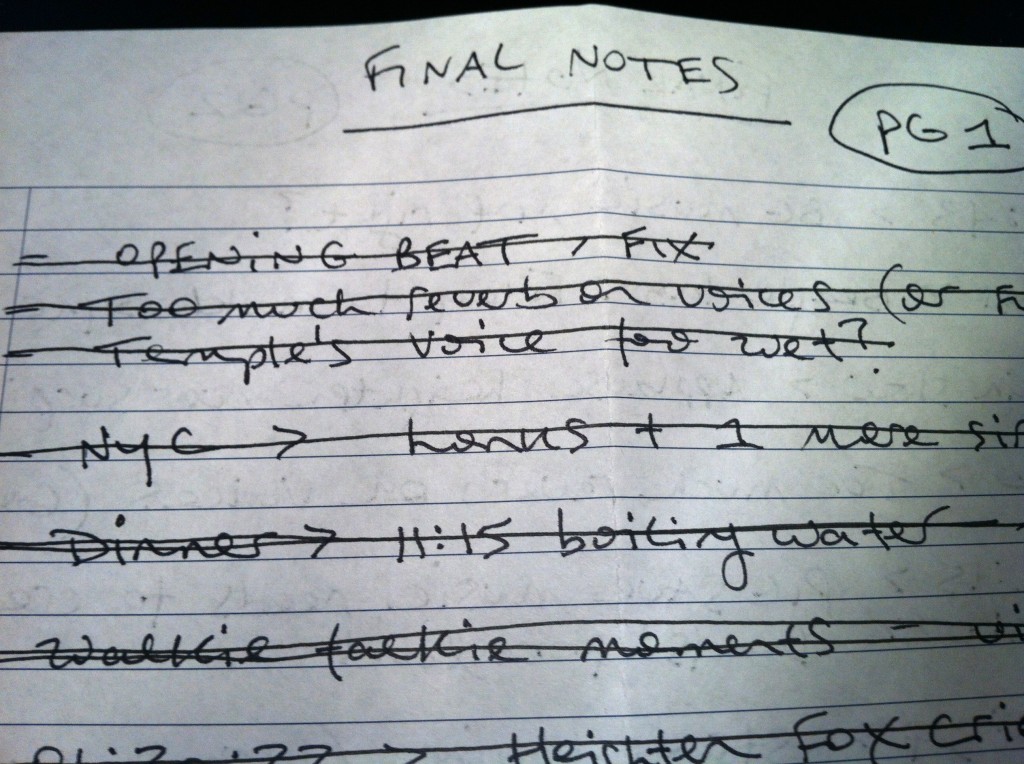 FINAL NOTES
PG 1
- OPENING BEAT, FIX
- Too much reverb on voices (or
- Temple's voice too wet?
- NYC → honks + 1 more
- Dinner → 11:15 boiling water -
- Walkie talkie moments -
→ Heighten Fox